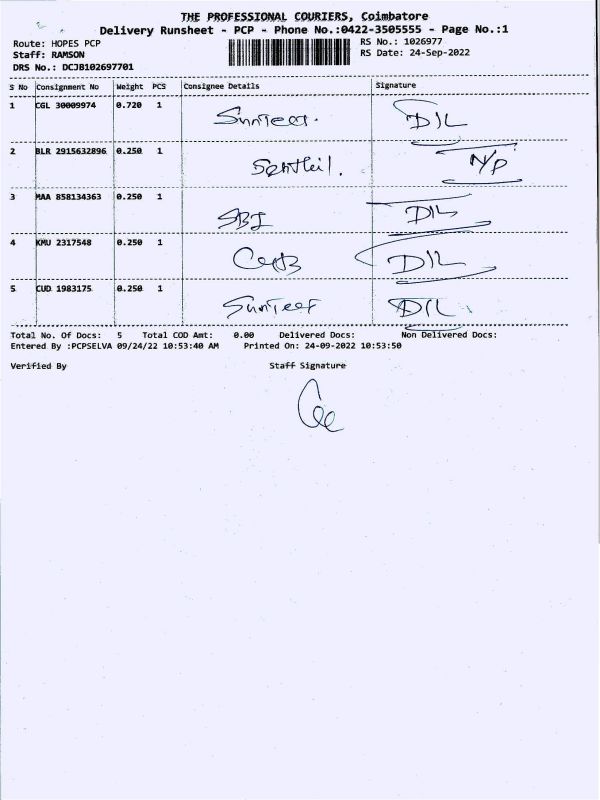 THE PROFESSIONAL COURIERS, Coimbatore
Delivery Runsheet - PCP - Phone No.:0422-3505555 - Page No.:1
Route: HOPES PCP
Staff: RAMSON
DRS No.: DCJB102697701
RS No.: 1026977
RS Date: 24-Sep-2022
S No Consignment No Weight PCS Consignee Details Signature
1 CGL 30009974 0.720 1 D/L
2 BLR 2915632896 0.250 1 Senthil. N/P
3 MAA 858134363 0.250 1 SBI D/L
4 KMU 2317548 0.250 1 D/L
5 CUD 1983175 0.250 1 D/L
Total No. Of Docs: 5 Total COD Amt: 0.00 Delivered Docs: Non Delivered Docs:
Entered By :PCPSELVA 09/24/22 10:53:40 AM Printed On: 24-09-2022 10:53:50
Verified By Staff Signature